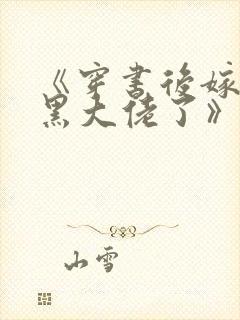 《穿书后嫁
黑大佬了》
山雪